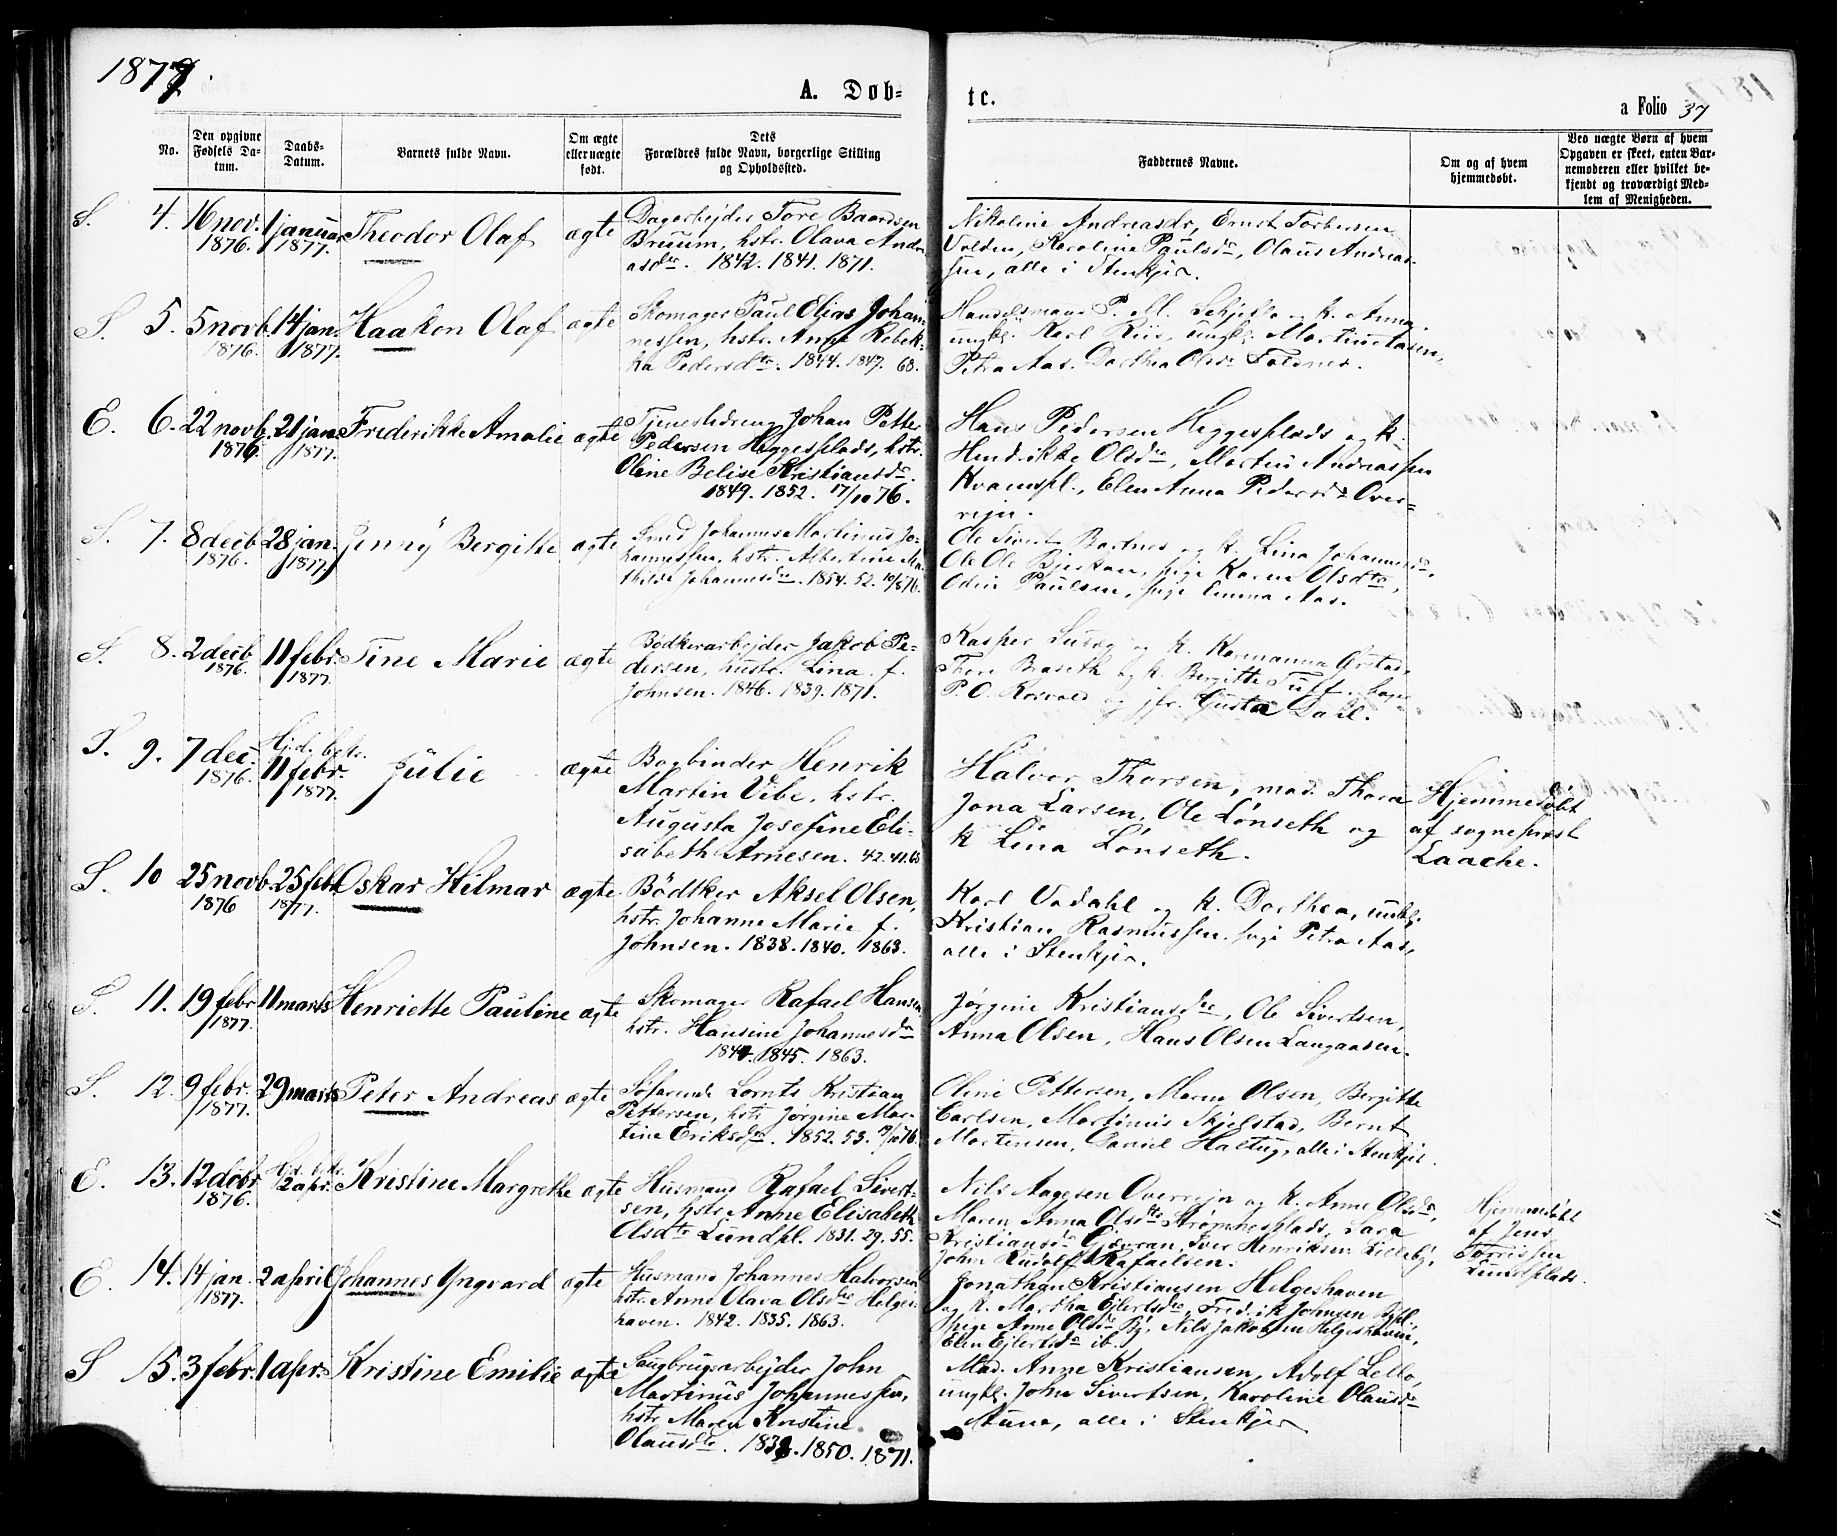 1877.
A. Døb=
tc.
a Folio 37
No.
Den opgivne
Fødsels Da-
tum.
Daabs-
Datum.
Barnets fulde Navn.
Om ægte
eller uægte
født.
Dets
Forældres fulde Navn, borgerlige Stilling
og Opholdssted.
Faddernes Navne.
Om og af hvem
hjemmedøbt.
Ved uægte Børn af hvem
Opgaven er skeet, enten Bar-
nemoderen eller hvilket be-
kjendt og troværdigt Med-
lem af Menigheden.
S. 4. 16 nov. 1876. 1 januar 1877. Theodor Olaf ægte
Dagarbejder Tore Baardsen
Bruum, hstr. Olava Andre-
asdtr. 1842. 1841. 1871.
Nikoline Andreasdr, Ernst Torbersen
Volden, Karoline Paulsdr, Olaus Andreas-
sen, alle i Stenkjær.
S. 5. 5 novb. 1876. 14 jan. 1877. Haakon Olaf ægte
Skomager Paul Elias Johan-
nessen, hstr. Anne Rebek-
ka Pedersdtr. 1844. 1847. 68.
Handelsmand P. M. Schjefte og k. Anna,
ungk. Karl Riis, ungk. Martin
Petra Aas. Dorthea Olsdr
E. 6. 22 novb. 1876. 21 jan. 1877. Frederikke Amalie ægte
Tjenestedreng Johan Petter
Pedersen Heggesplads, hstr.
Oline Belise Kristiansdr.
1849. 1852. 17/10 76.
Hans Pedersen Heggesplads og k.
Hendrikke Olsdr, Martin Andreassen
Kvamspl., Elen Anna Pedersdr Over-
rejn.
S. 7. 8 decb 1876. 28 jan. 1877. Jenny Bergitte ægte
Smed Johannes Martinus Jo-
hannessen, hstr. Albertine Ma-
thilde Johannesdr. 1854. 52. 10/8 76.
Ole Sivert Bartnes og k. Lina Johannesdr,
Ole Ole Bjerkan, pige Karen Olsdtr,
Odin Paulsen, pige Emma Aas.
S. 8. 2 decb 1876. 11 febr. 1877. Tine Marie ægte
Bødkerarbejder Jakob Pe-
dersen, hustr. Lina f.
Johnsen. 1846. 1839. 1871.
Kasper og k. Karnanna
Thore Braseth og k. Bergitte
P. O. og jfr. Gusta Dahl.
S. 9. 7 dec. 1876. Hjd. bstr. 11 febr. 1877. Julie ægte
Bogbinder Henrik
Martin Vibe, hstr.
Augusta Josefine Eli-
sabeth Arnesen. 42. 41. 65
Halvor Thorsen, mad. Thora
Jona Larsen, Ole Lønseth og
k Lina Lønseth.
Hjemmedøbt
af sogneprest
Laache.
S. 10 25 novb 1876 25 febr 1877. Oskar Hilmar ægte
Bødtker Aksel Olsen,
hstr. Johanne Marie f.
Johnsen. 1838. 1840. 1863.
Karl Vadahl og k. Dorthea, ungk.
Kristian Rasmussen, pige Petra Aas,
alle i Stenkjær.
S. 11. 19 febr 1877. 11 marts Henriette Pauline ægte
Skomager Rafael Hansen
hstr. Hansine Johannesdr
1844. 1845. 1863.
Jørgine Kristiansdtr, Ole Sivertsen,
Anna Olsen, Hans Olsen Langaasen.
S. 12. 9 febr. 1877. 29 marts Peter Andreas ægte
Søfarende Lornts Kristian
Pettersen, hstr Jørgine Mar-
tine Eriksdtr. 1852. 53. 76.
Oline Pettersen, Maren Olsen, Bergitte
Carlsen, Martinus Skjelstad, Bernt
Mortensen, Daniel Haltug, alle i Stenkjær.
E. 13. 12 dcbr 1876. Hjd. bstr. 2 apr. Kristine Margrethe ægte
Husmand Rafael Sivert-
sen, hstr Anne Elisabeth
Olsdtr Lundpl. 1831. 29. 55.
Nils Aagesen Overrejn og k. Anne Olsdr,
Maren Anna Olsdtr Strømnesplads, Sara
Kristiansdtr Gjævran, Iver Henriksen Lilleby,
John Rudolf Rafaelsen.
Hjemmedøbt
af Jens
Torrissen
Lundsplads.
E. 14. 14 jan. 1877. 2 april Johannes Yngvard ægte
Husmand Johannes Halvorsen
hstr. Anne Olava Olsdtr Helges-
haven. 1842. 1835. 1863.
Jonathan Kristiansen Helgeshaven
og k. Martha Ejlertsdr, Fredrik Johnsen Bypl.,
Pige Anne Olsdr By, Nils Jakobsen Helgeshaven,
Elen Ejlertsdr ib.
S 15. 3 febr. 1 apr. Kristine Emilie ægte
Saugbrugsarbejder John
Martinus Johannessen,
hstr Maren Kristine
Olausdtr. 1838. 1850. 1871.
Mad. Anne Kristiansen, Adolf Lello,
ungk. John Sivertsen, Karoline Olausdr
alle i Stenkjær